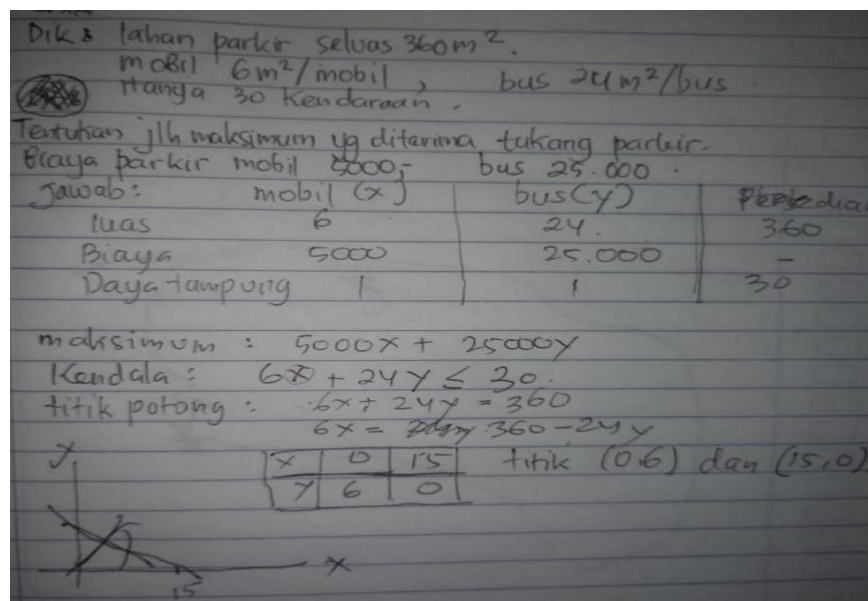 Dik : lahan parkir seluas 360 m².
mobil 6m²/mobil, bus 24m²/bus
Hanya 30 Kendaraan.
Tentukan jlh maksimum yg diterima tukang parkir.
Biaya parkir mobil 5000,- bus 25.000.
Jawab : mobil (x) bus (y) Persedian
luas 6 24. 360
Biaya 5000 25.000 -
Daya tampung 1 1 30
maksimum : 5000x + 25000y
Kendala : 6x + 24y ≤ 30.
titik potong : 6x + 24y = 360
6x = 360 - 24y
y x 0 15 titik (0.6) dan (15,0)
y 6 0
x
15